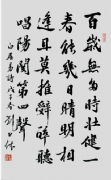 百歲無多時壯健一
春能幾日晴明相
逢且莫推辭醉聽
唱陽關第四聲
白居易詩 劉